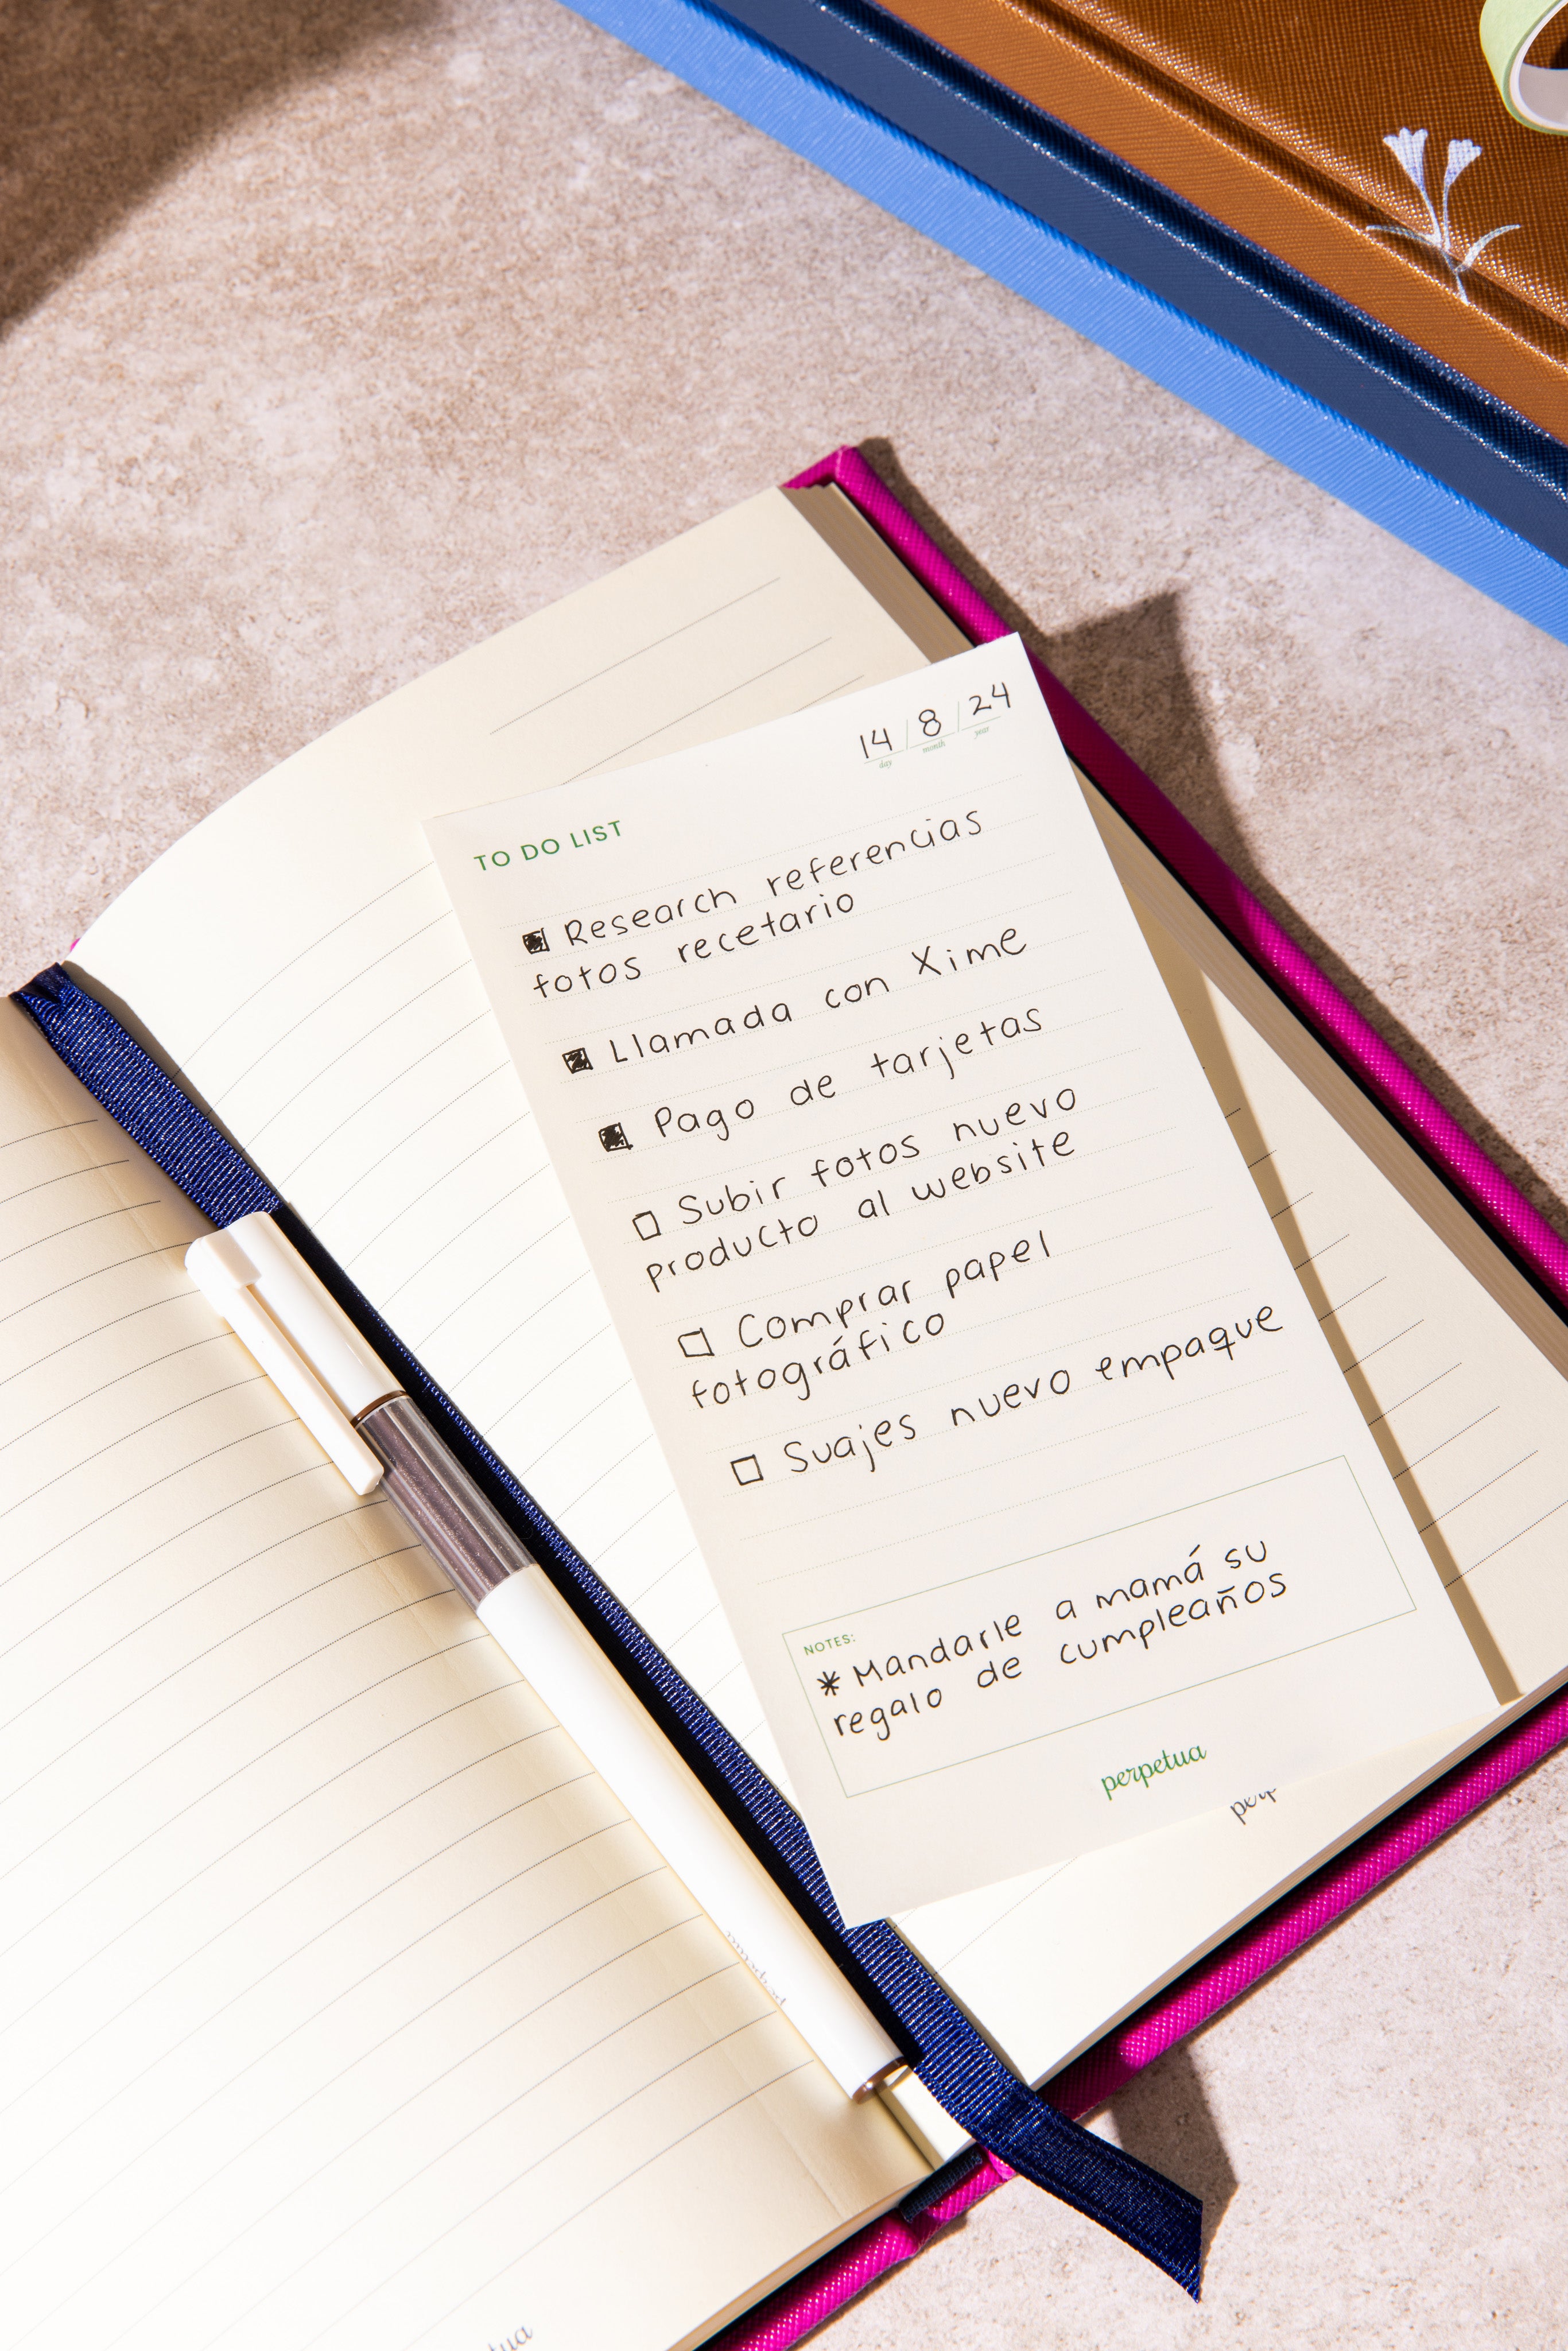 14 / 8 / 24
day month year
TO DO LIST
Research referencias
fotos recetario
Llamada con Xime
Pago de tarjetas
Subir fotos nuevo
producto al website
Comprar papel
fotográfico
Suajes nuevo empaque
NOTES:
* Mandarle a mamá su
regalo de cumpleaños
perpetua
perpetua